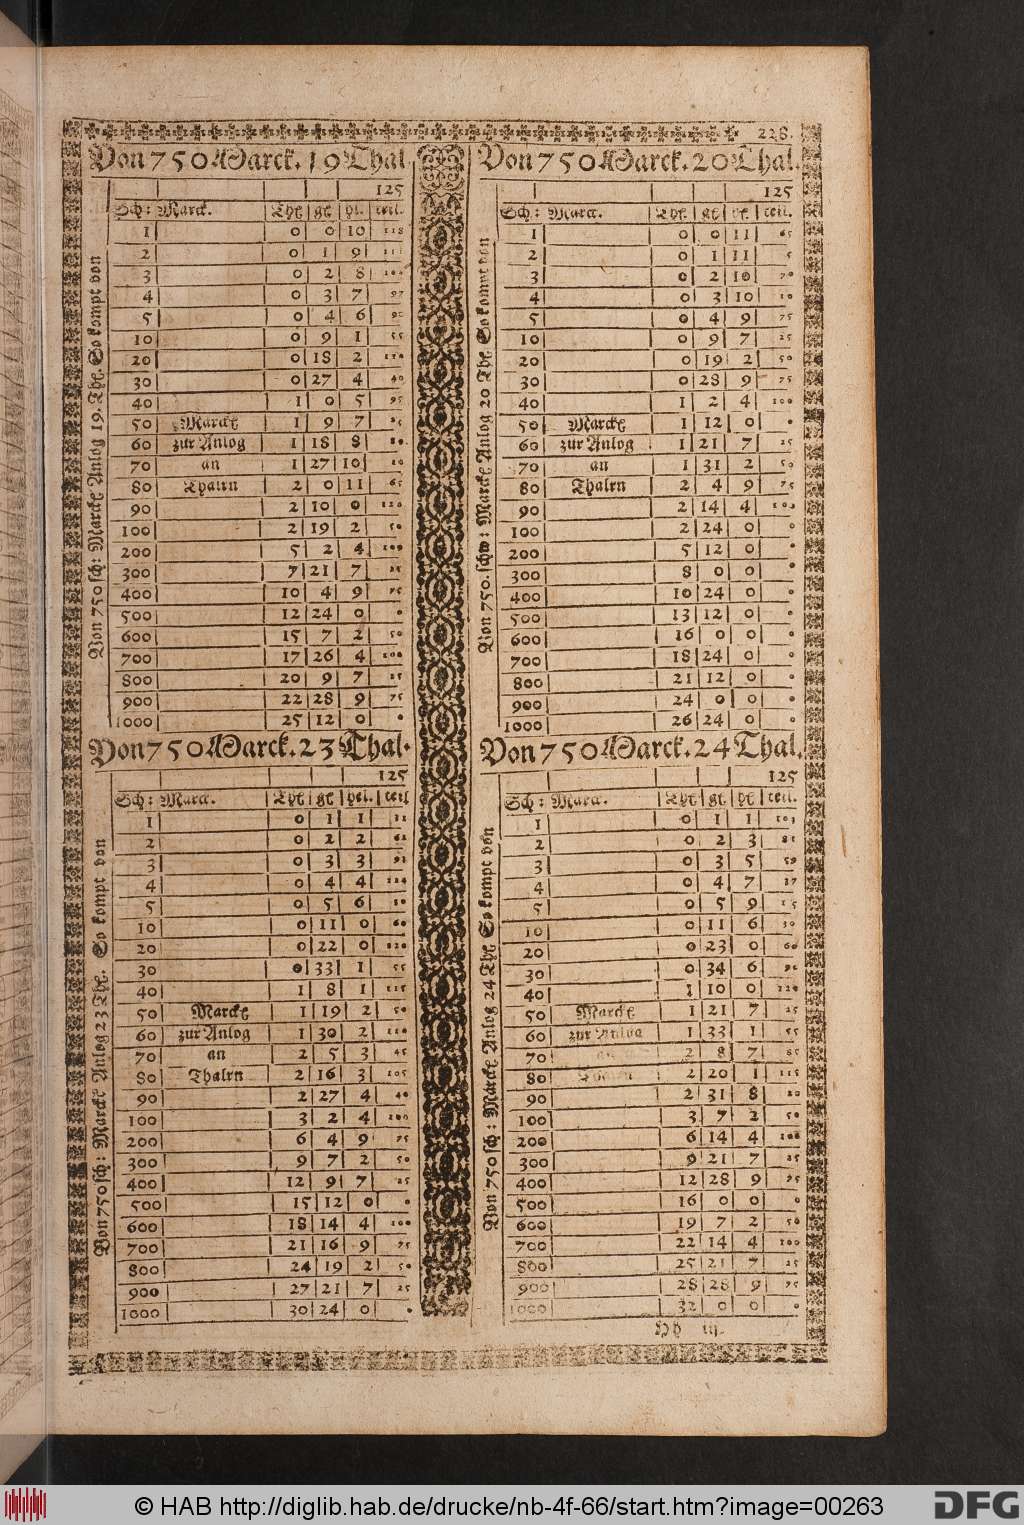 228.
Von 750 Marck. 19 Thal.
125
Sch: Marck. Thl. gl. hl. teil.
1 0 0 10 118
2 0 1 9 111
3 0 2 8 104
4 0 3 7 97
5 0 4 6 90
10 0 9 1 55
20 0 18 2 110
30 0 27 4 40
40 1 0 5 95
50 Marckē 1 9 7 25
60 zur Anlog 1 18 8 80
70 an 1 27 10 10
80 Thalrn 2 0 11 65
90 2 10 0 120
100 2 19 2 50
200 5 2 4 100
300 7 21 7 25
400 10 4 9 75
500 12 24 0 0
600 15 7 2 50
700 17 26 4 100
800 20 9 7 25
900 22 28 9 75
1000 25 12 0 0
Von 750 sch: Marckē Anlog 19. Thl. So kompt von
Von 750 Marck. 20 Thal.
125
Sch: Marck. Thl. gl. hl. teil.
1 0 0 11 65
2 0 1 11 5
3 0 2 10 70
4 0 3 10 10
5 0 4 9 75
10 0 9 7 25
20 0 19 2 50
30 0 28 9 75
40 1 2 4 100
50 Marckē 1 12 0 0
60 zur Anlog 1 21 7 25
70 an 1 31 2 50
80 Thalrn 2 4 9 75
90 2 14 4 100
100 2 24 0 0
200 5 12 0 0
300 8 0 0 0
400 10 24 0 0
500 13 12 0 0
600 16 0 0 0
700 18 24 0 0
800 21 12 0 0
900 24 0 0 0
1000 26 24 0 0
Von 750. schw: Marckē Anlog 20 Thl. So kompt von
Von 750 Marck. 23 Thal.
125
Sch: Marck. Thl gl. hel. teil
1 0 1 1 31
2 0 2 2 62
3 0 3 3 93
4 0 4 4 124
5 0 5 6 30
10 0 11 0 60
20 0 22 0 120
30 0 33 1 55
40 1 8 1 115
50 Marckē 1 19 2 50
60 zur Anlog 1 30 2 110
70 an 2 5 3 45
80 Thalrn 2 16 3 105
90 2 27 4 40
100 3 2 4 100
200 6 4 9 75
300 9 7 2 50
400 12 9 7 25
500 15 12 0 0
600 18 14 4 100
700 21 16 9 75
800 24 19 2 50
900 27 21 7 25
1000 30 24 0 0
Von 750 sch: Marckē Anlog 23 Thl. So kompt von
Von 750 Marck. 24 Thal.
125
Sch: Marck. Thl gl. hl teil.
1 0 1 1 103
2 0 2 3 81
3 0 3 5 59
4 0 4 7 37
5 0 5 9 15
10 0 11 6 30
20 0 23 0 60
30 0 34 6 90
40 1 10 0 120
50 Marckē 1 21 7 25
60 zur Anlog 1 33 1 55
70 an 2 8 7 85
80 Thalrn 2 20 1 115
90 2 31 8 20
100 3 7 2 50
200 6 14 4 100
300 9 21 7 25
400 12 28 9 75
500 16 0 0 0
600 19 7 2 50
700 22 14 4 100
800 25 21 7 25
900 28 28 9 75
1000 32 0 0 0
Von 750 sch: Marckē Anlog 24 Thl. So kompt von
© HAB http://diglib.hab.de/drucke/nb-4f-66/start.htm?image=00263
DFG